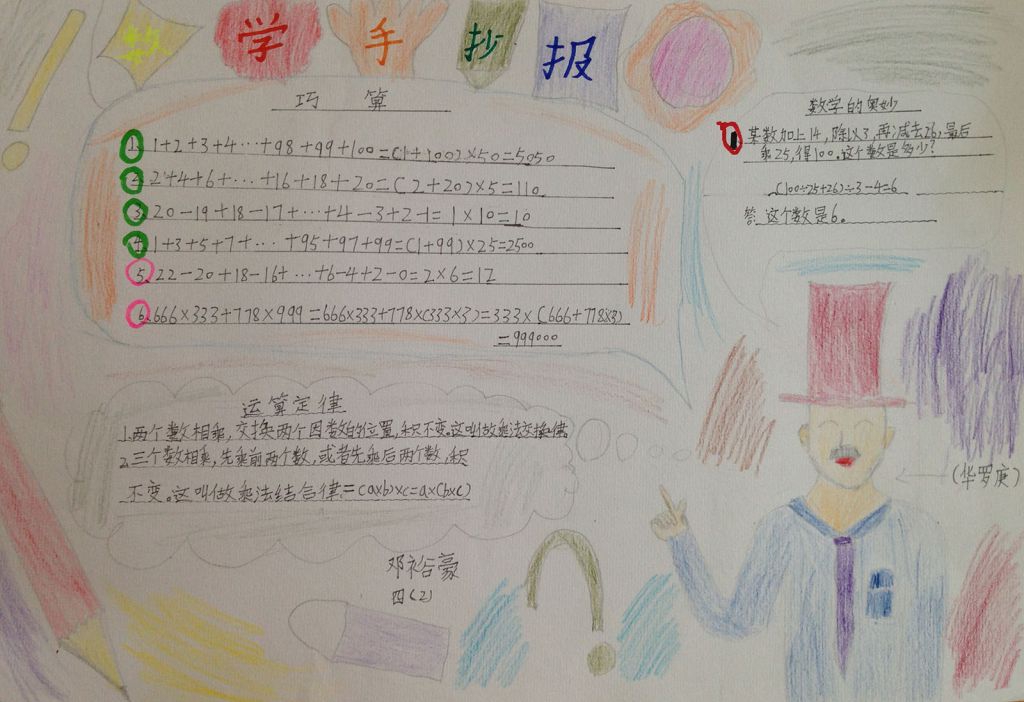 数学手抄报
巧 算
1. 1+2+3+4…+98+99+100=(1+100)×50=5050
2. 2+4+6+…+16+18+20=(2+20)×5=110
3. 20-19+18-17+…+4-3+2-1=1×10=10
4. 1+3+5+7+…+95+97+99=(1+99)×25=2500
5. 22-20+18-16+…+6-4+2-0=2×6=12
6. 666×333+778×999=666×333+778×(333×3)=333×(666+778×3)
=999000
数学的奥妙
1 某数加上14,除以3,再减去26,最后
乘25,得100。这个数是多少?
(100÷25+26)÷3-4=6
答:这个数是6。
运算定律
1.两个数相乘,交换两个因数的位置,积不变。这叫做乘法交换律。
2.三个数相乘,先乘前两个数,或者先乘后两个数,积
不变。这叫做乘法结合律=(a×b)×c=a×(b×c)
(华罗庚)
邓裕豪
四(2)